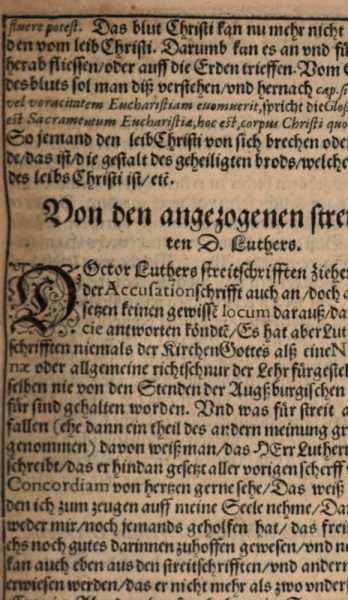 fluere potest. Das blut Christi kan nu mehr nicht
den vom leib Christi. Darumb kan es an vnd fü
herab fliessen/oder auff die Erden trieffen. Vom
des bluts sol man diß verstehen/vnd hernach cap. si
vel voracitatem Eucharistiam euomuerit, spricht die Glos
est Sacramentum Eucharistiæ, hoc est, corpus Christi quo
So jemand den leib Christi von sich brechen ode
de/das ist/die gestalt des geheiligten brods/welche
des leibs Christi ist/etc.
Von den angezogenen stre
ten D. Luthers.
DOctor Luthers streitschrifften ziehe
der Accusationschrifft auch an/doch
setzen keinen gewisse locum darauß/da
cie antworten köndte/Es hat aber Lut
schrifften niemals der Kirchen Gottes alß eine N
næ oder allgemeine richtschnur der Lehr fürgestel
selben nie von den Stenden der Augßburgischen
für sind gehalten worden. Vnd was für streit a
fallen (ehe dann ein theil des andern meinung gr
genommen) davon weiß man/das HErr Luther
schreibt/das er hindan gesetzt aller vorigen scherff
Concordiam von hertzen gerne sehe/Das weiß
den ich zum zeugen auff meine Seele nehme/Da
weder mir/noch jemands geholfen hat/das frei
chs noch gutes darinnen zuhoffen gewesen/vnd n
kan auch eben aus den streitschrifften/vnd andern
erwiesen werden/das er nicht mehr als zwo vnder